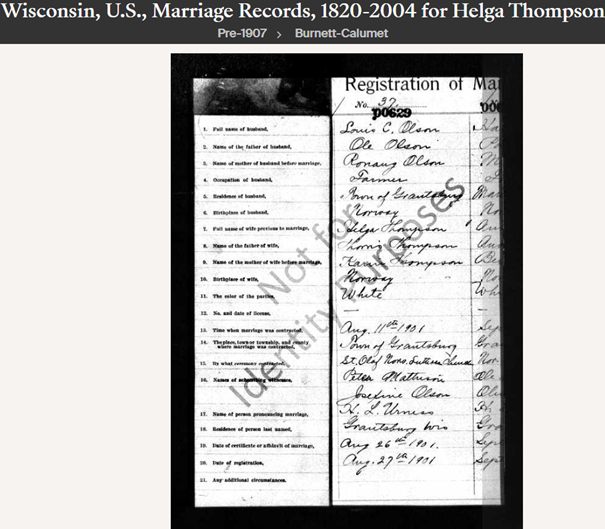 Wisconsin, U.S., Marriage Records, 1820-2004 for Helga Thompson
Pre-1907 > Burnett-Calumet
Registration of Ma
No. 37.
p0629
p0
1. Full name of husband, Louis C. Olson
2. Name of the father of husband, Ole Olson
3. Name of mother of husband before marriage, Olson
4. Occupation of husband, Farmer
5. Residence of husband, Town of Grantsburg
6. Birthplace of husband, Norway
7. Full name of wife previous to marriage, Helga Thompson
8. Name of the father of wife, Thompson
9. Name of the mother of wife before marriage, Thompson
10. Birthplace of wife, Norway
11. The color of the parties, White
12. No. and date of license, —
13. Time when marriage was contracted, Aug. 11th 1901
14. The place, town or township, and county, where marriage was contracted, Town of Grantsburg
15. By what ceremony contracted, St. Olaf Nors. Luthern
16. Names of subscribing witnesses, Peter Mathison
Josefine Olson
17. Name of person pronouncing marriage, H. L. Urness
18. Residence of person last named, Grantsburg Wis
19. Date of certificate or affidavit of marriage, Aug 26th 1901.
20. Date of registration, Aug. 27th 1901
21. Any additional circumstances.
Not for
Identity Purposes